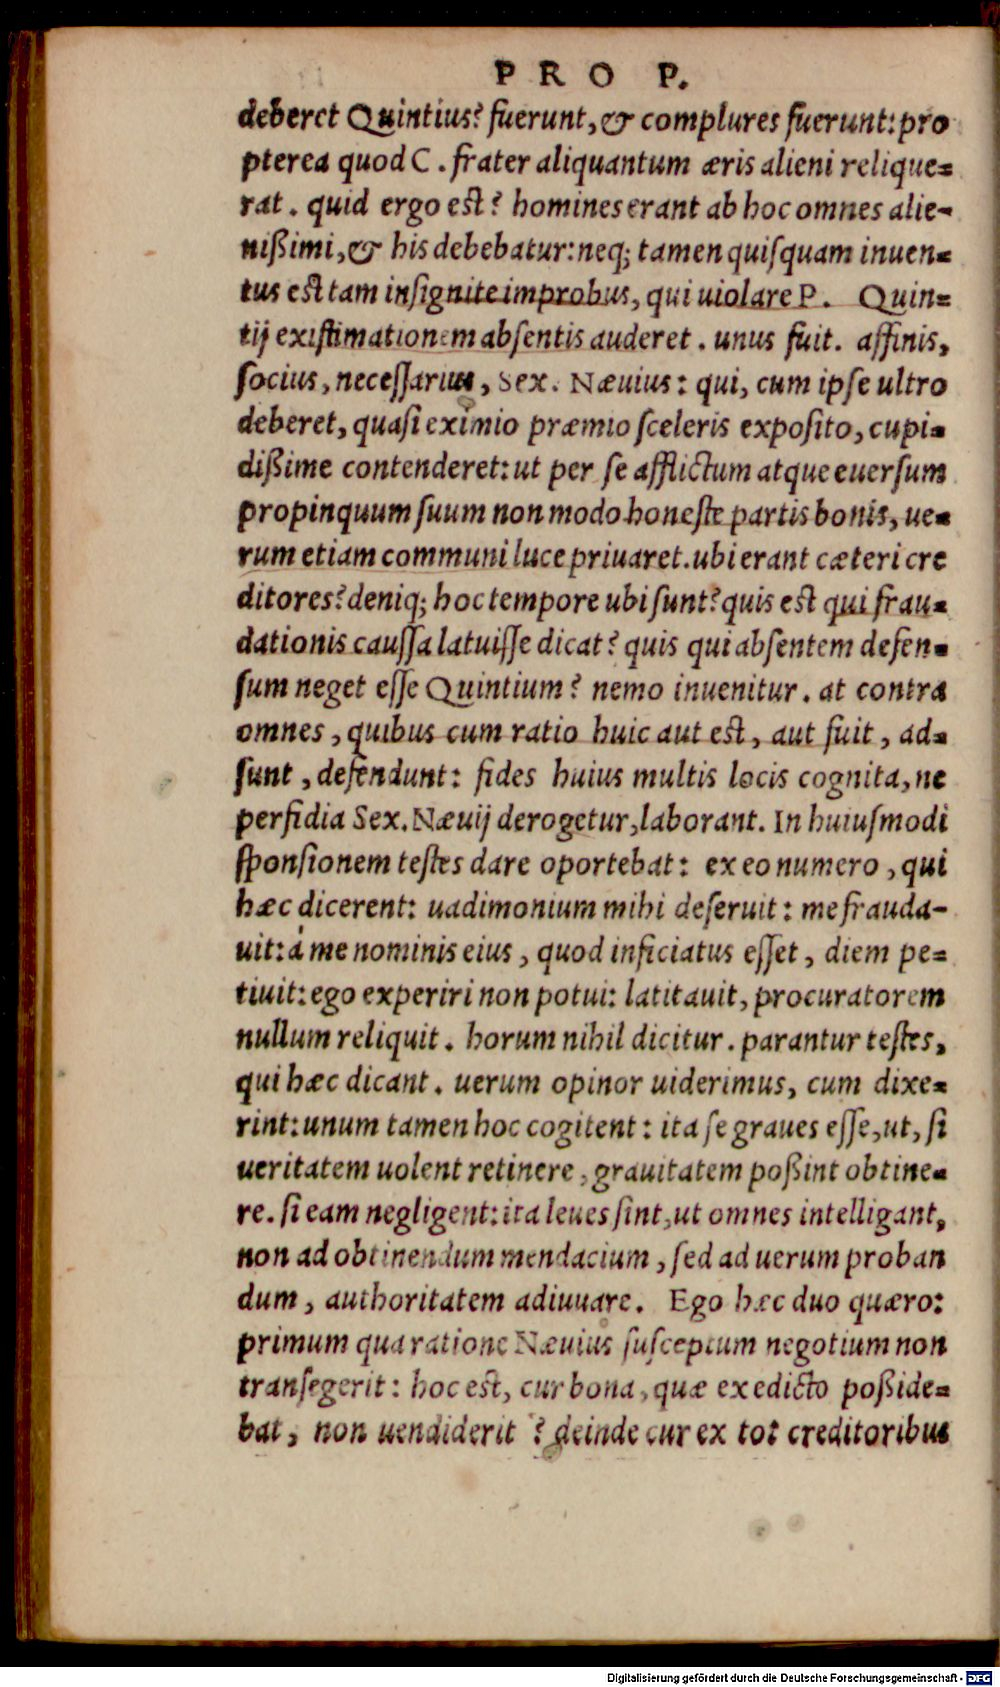 PRO P.
deberet Quintius? fuerunt, & complures fuerunt: pro
pterea quod C. frater aliquantum æris alieni relique=
rat. quid ergo est? homines erant ab hoc omnes alie-
nißimi, & his debebatur: neq; tamen quisquam inuen=
tus est tam insignite improbus, qui uiolare P. Quin=
tij existimationem absentis auderet. unus fuit. affinis,
socius, necessarius, Sex. Næuius: qui, cum ipse ultro
deberet, quasi eximio præmio sceleris exposito, cupi=
dißime contenderet: ut per se afflictum atque euersum
propinquum suum non modo honeste partis bonis, ue=
rum etiam communi luce priuaret. ubi erant cæteri cre
ditores? deniq; hoc tempore ubi sunt? quis est qui frau=
dationis caussa latuisse dicat? quis qui absentem defen=
sum neget esse Quintium? nemo inuenitur. at contra
omnes, quibus cum ratio huic aut est, aut fuit, ad=
sunt, defendunt: fides huius multis locis cognita, ne
perfidia Sex. Næuij derogetur, laborant. In huiusmodi
sponsionem testes dare oportebat: ex eo numero, qui
hæc dicerent: uadimonium mihi deseruit: me frauda-
uit: á me nominis eius, quod inficiatus esset, diem pe=
tiuit: ego experiri non potui: latitauit, procuratorem
nullum reliquit. horum nihil dicitur. parantur testes,
qui hæc dicant. uerum opinor uiderimus, cum dixe=
rint: unum tamen hoc cogitent: ita se graues esse, ut, si
ueritatem uolent retinere, grauitatem poßint obtine=
re. si eam negligent: ita leues sint, ut omnes intelligant,
non ad obtinendum mendacium, sed ad uerum proban
dum, authoritatem adiuuare. Ego hæc duo quæro:
primum qua ratione Næuius susceptum negotium non
transegerit: hoc est, cur bona, quæ ex edicto poßide=
bat, non uendiderit? deinde cur ex tot creditoribus
Digitalisierung gefördert durch die Deutsche Forschungsgemeinschaft - DFG